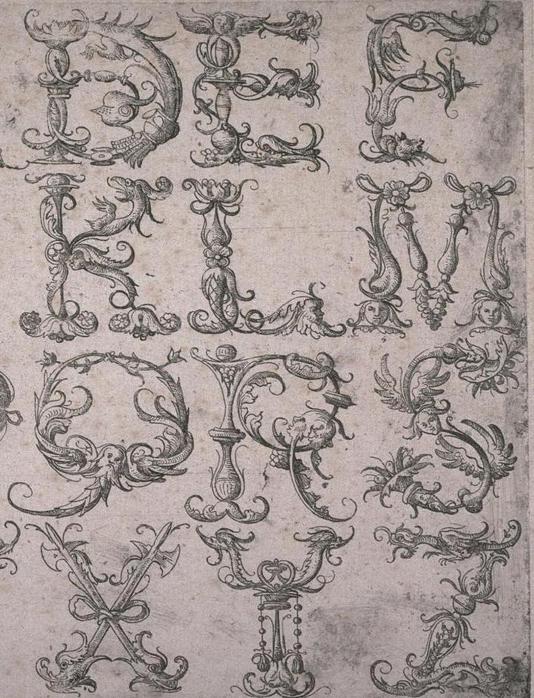 D E F
K L M
Q R S
X Y Z